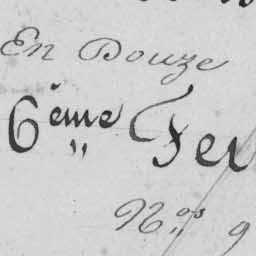 En Douze
6ème Fer
N.os 9